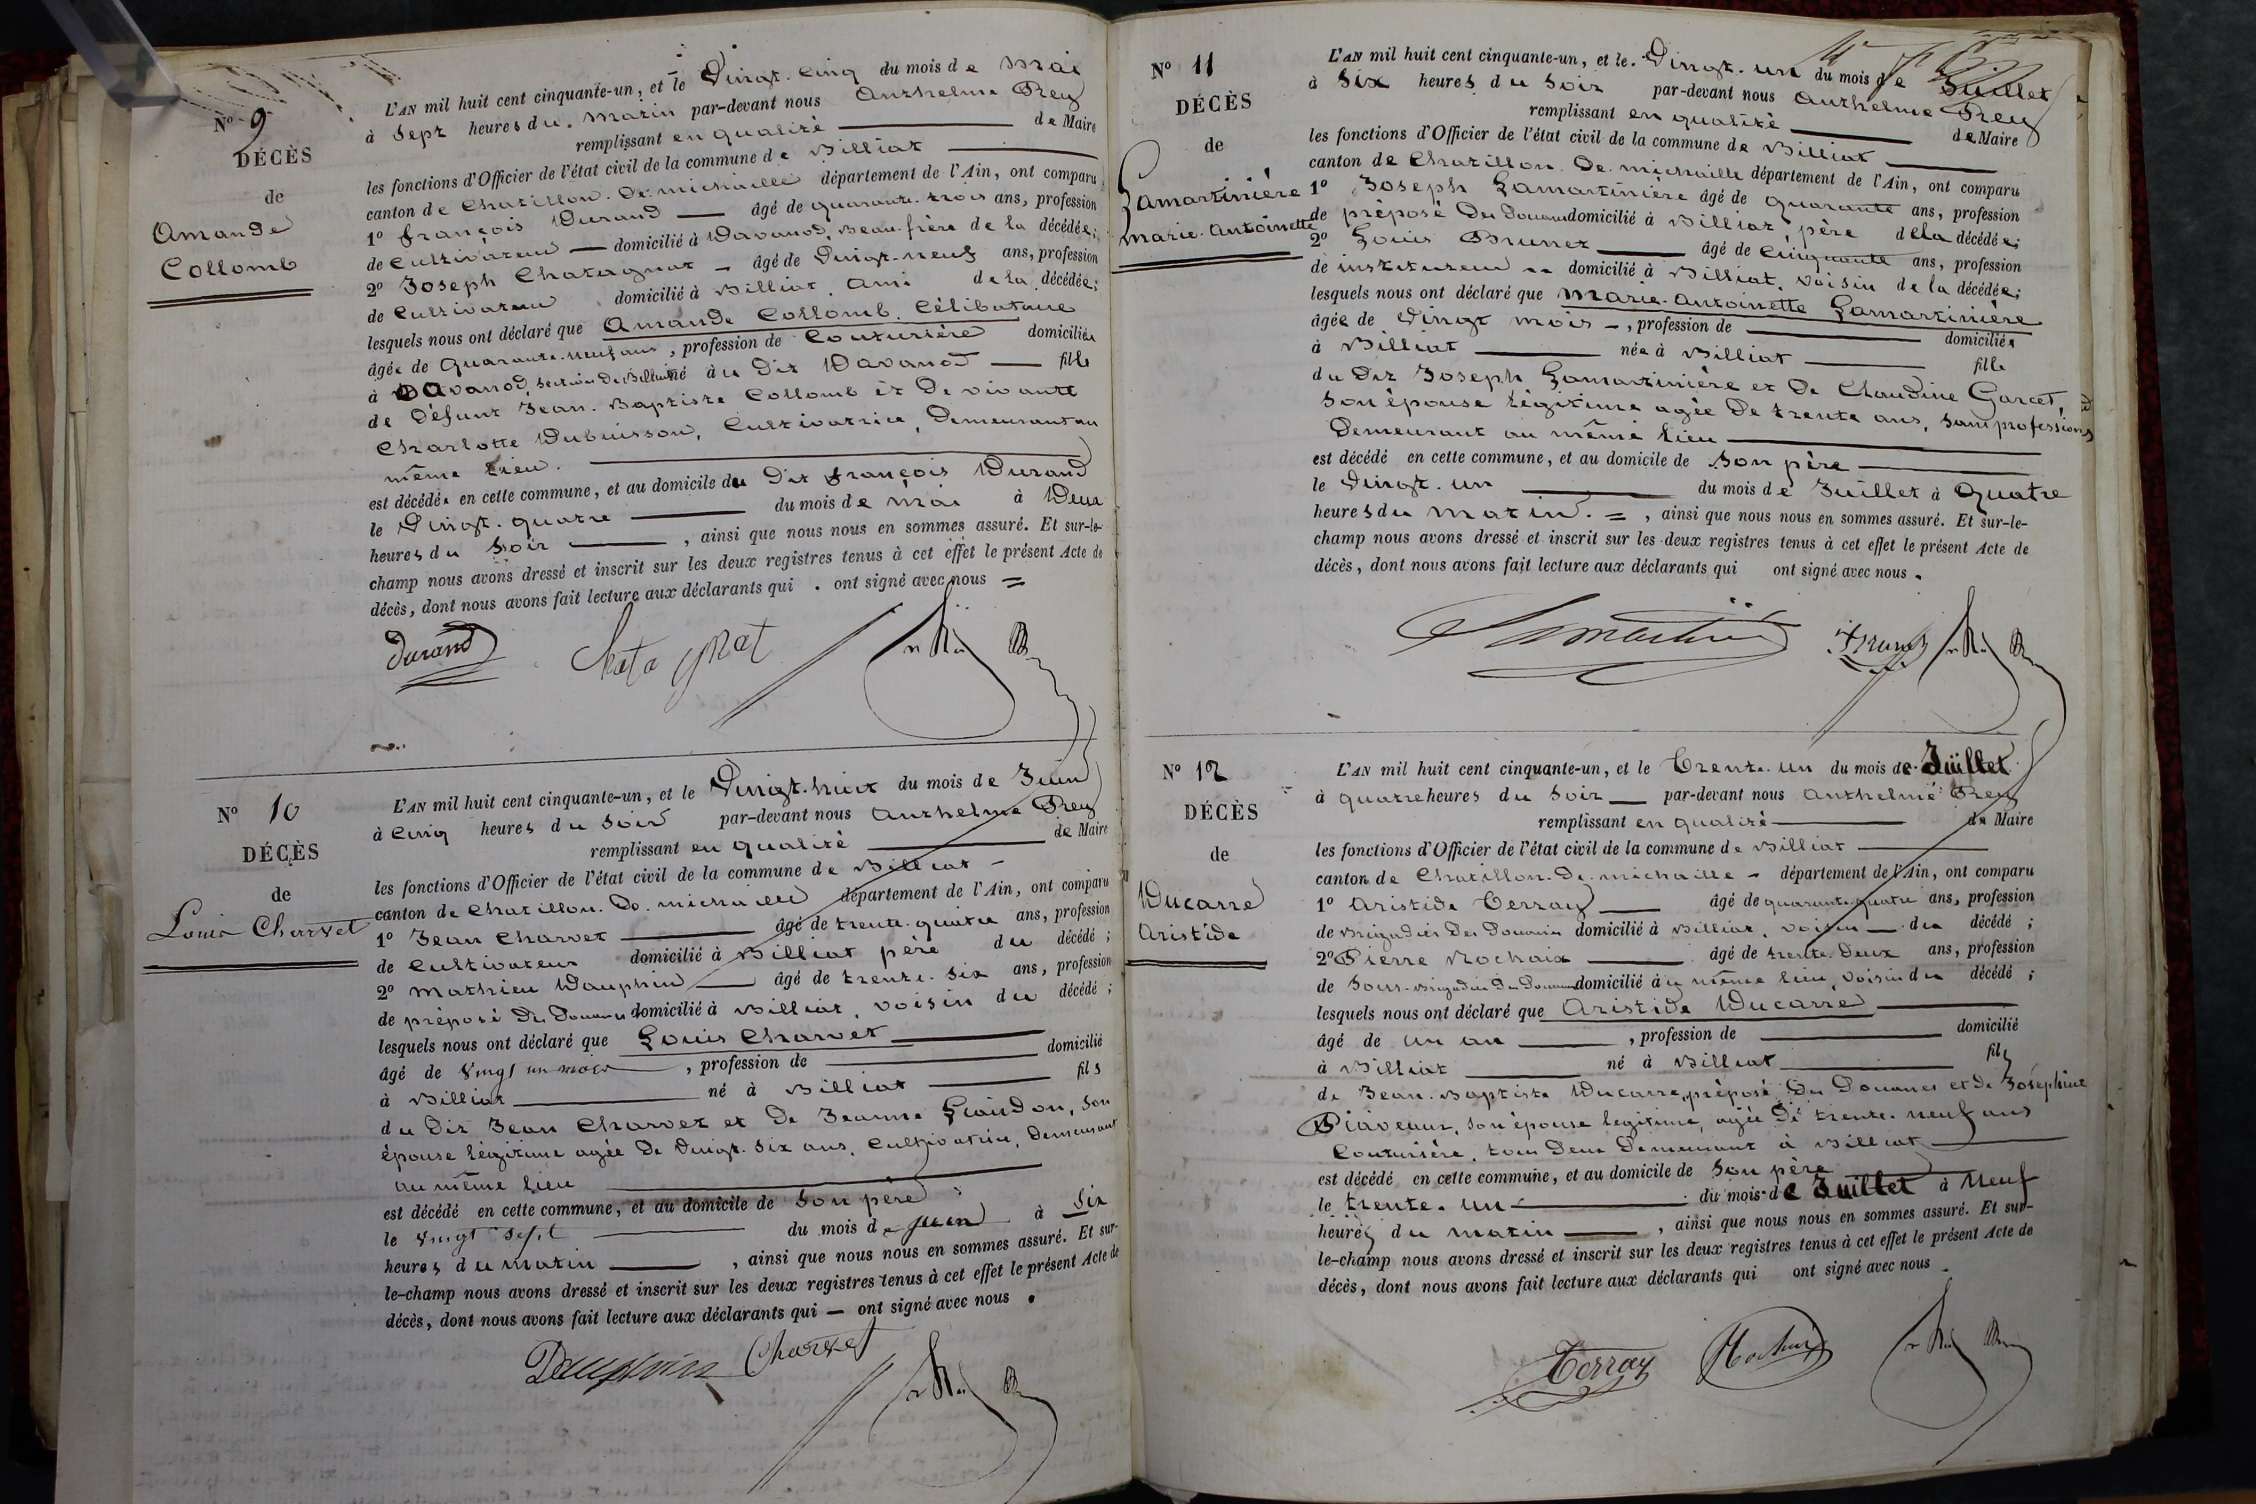 N° 9
DÉCÈS
de
Amande
Collomb
L'AN mil huit cent cinquante-un, et le Vingt-cinq du mois de Mai
à Sept heures du Matin par-devant nous Anthelme Rey
remplissant en qualité de Maire
les fonctions d'Officier de l'état civil de la commune de Billiat
canton de Chatillon-De-michaille département de l'Ain, ont comparu
1° françois Durand âgé de quarante-trois ans, profession
de Cultivateur domicilié à Davanod, Beau-frère de la décédée;
2° Joseph Chatagnat âgé de Vingt-neuf ans, profession
de Cultivateur domicilié à Billiat, Ami de la décédée;
lesquels nous ont déclaré que Amande Collomb, Célibataire
âgée de Quarante-neuf ans, profession de Couturière domiciliée
à Davanod, Section de Billiat né au Dit Davanod fille
de Défunt Jean-Baptiste Collomb et De vivante
Charlotte Dubuisson, Cultivatrice, Demeurant au
même lieu.
est décédée en cette commune, et au domicile du Dit françois Durand
le Vingt-quatre du mois de Mai à Deux
heures du Soir, ainsi que nous nous en sommes assuré. Et sur-le-
champ nous avons dressé et inscrit sur les deux registres tenus à cet effet le présent Acte de
décès, dont nous avons fait lecture aux déclarants qui ont signé avec nous
Durand Chatagnat
N° 10
DÉCÈS
de
Louis Charvet
L'AN mil huit cent cinquante-un, et le Vingt-huit du mois de Juin
à Cinq heures du Soir par-devant nous Anthelme Rey
remplissant en qualité de Maire
les fonctions d'Officier de l'état civil de la commune de Billiat
canton de Chatillon-De-michaille département de l'Ain, ont comparu
1° Jean Charvet âgé de trente-quatre ans, profession
de Cultivateur domicilié à Billiat père du décédé;
2° Mathieu Dauphin âgé de trente-Six ans, profession
de préposé Des Douanes domicilié à Billiat, voisin du décédé;
lesquels nous ont déclaré que Louis Charvet
âgé de Vingt un mois, profession de domicilié
à Billiat né à Billiat fils
du Dit Jean Charvet et De Jeanne, Son
épouse légitime agée De Vingt-Six ans, Cultivatrice, Demeurant
au même lieu
est décédé en cette commune, et au domicile de Son père
le Vingt Sept du mois de Juin à Six
heures du matin, ainsi que nous nous en sommes assuré. Et sur-
le-champ nous avons dressé et inscrit sur les deux registres tenus à cet effet le présent Acte de
décès, dont nous avons fait lecture aux déclarants qui ont signé avec nous.
Dauphin Charvet
N° 11
DÉCÈS
de
Lamartinière
Marie-Antoinette
L'AN mil huit cent cinquante-un, et le Vingt-un du mois de Juillet
à Six heures du Soir par-devant nous Anthelme Rey
remplissant en qualité de Maire
les fonctions d'Officier de l'état civil de la commune de Billiat
canton de Chatillon-De-michaille département de l'Ain, ont comparu
1° Joseph Lamartinière âgé de quarante ans, profession
de préposé Des Douanes domicilié à Billiat père de la décédée;
2° Louis Brunet âgé de Cinquante ans, profession
de instituteur domicilié à Billiat, Voisin de la décédée;
lesquels nous ont déclaré que Marie-Antoinette Lamartinière
âgée de Vingt mois, profession de domiciliée
à Billiat née à Billiat fille
du Dit Joseph Lamartinière et De Claudine Garcet,
Son épouse légitime agée De trente ans, Sans profession,
Demeurant au même lieu
est décédé en cette commune, et au domicile de Son père
le Vingt-un du mois de Juillet à Quatre
heures du Matin, ainsi que nous nous en sommes assuré. Et sur-le-
champ nous avons dressé et inscrit sur les deux registres tenus à cet effet le présent Acte de
décès, dont nous avons fait lecture aux déclarants qui ont signé avec nous.
Lamartinière Brunet
N° 12
DÉCÈS
de
Ducarre
Aristide
L'AN mil huit cent cinquante-un, et le Trente-un du mois de Juillet
à quatre heures du Soir par-devant nous Anthelme Rey
remplissant en qualité de Maire
les fonctions d'Officier de l'état civil de la commune de Billiat
canton de Chatillon-De-michaille département de l'Ain, ont comparu
1° Aristide Terray âgé de quarante-quatre ans, profession
de Brigadier Des Douanes domicilié à Billiat, voisin du décédé;
2° Pierre Rochaix âgé de trente-Deux ans, profession
de Sous-Brigadier Des Douanes domicilié au même lieu, Voisin du décédé;
lesquels nous ont déclaré que Aristide Ducarre
âgé de un an, profession de domicilié
à Billiat né à Billiat fils
de Jean-Baptiste Ducarre, préposé Des Douanes et de Joséphine
son épouse légitime, agée De trente-neuf ans
Couturière, tous Deux Demeurant à Billiat
est décédé en cette commune, et au domicile de Son père
le trente-un du mois de Juillet à Neuf
heures du matin, ainsi que nous nous en sommes assuré. Et sur-
le-champ nous avons dressé et inscrit sur les deux registres tenus à cet effet le présent Acte de
décès, dont nous avons fait lecture aux déclarants qui ont signé avec nous.
Terray Rochaix